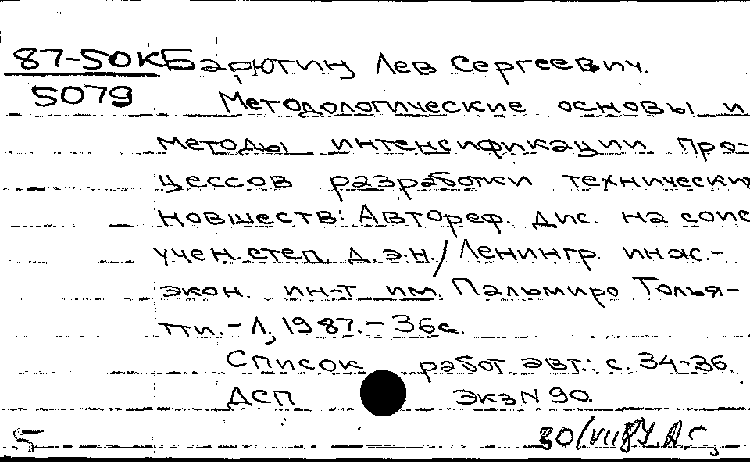 87-50К Барютин Лев Сергеевич.
5079
Методологические основы и
методы интенсификации про-
цессов разработки технически
новшеств: Автореф. дис. на соис
учен. степ. д.э.н./Ленингр. инж.-
экон. ин-т им. Пальмиро Толья-
тти. - Л, 1987. - 36с.
Список работ авт.: с. 34-36.
ДСП Экз N 90.
5